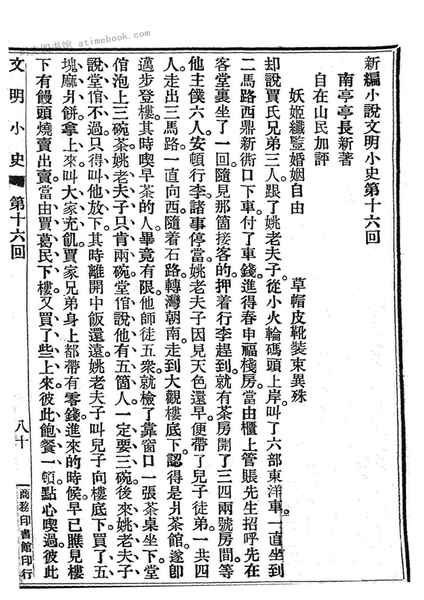 新編小說文明小史第十六回
南亭亭長新著
自在山民加評
妖姬纖豔婚姻自由　草帽皮靴裝束異殊
却說賈氏兄弟三人跟了姚老夫子。從小火輪碼頭上岸。叫了六部東洋車。一直坐到
二馬路西鼎新衖口下車。付了車錢。進得春申福棧房。當由櫃上管賬先生招呼。先在
客堂裏坐了一回。隨見那箇接客的。押着行李趕到。就有茶房開了三四兩號房間。等
他主僕六人。安頓行李。諸事停當。姚老夫子因見天色還早。便帶了兒子徒弟。一共四
人。走出三馬路。一直向西。隨着石路轉灣朝南。走到大觀樓底下。認得是爿茶館。遂卽
邁步登樓。其時喫早茶的人。畢竟有限。他師徒五衆。就檢了靠窗口一張茶桌坐下。堂
倌泡上三碗茶。姚老夫子只肯兩碗。堂倌說他有五箇人。一定要三碗。後來姚老夫子
說堂倌不過。只得叫他放下。其時離開中飯還遠。姚老夫子叫兒子向樓底下。買了五
塊麻爿餅。拿上來。叫大家充飢。賈家兄弟身上。都帶有零錢。進來的時候。早已瞧見樓
下有饅頭燒賣出賣。當由賈葛民下樓。又買了些上來。彼此飽餐一頓。點心喫過。彼此
文明小史　第十六回　八十　商務印書館印行
atimebook.com